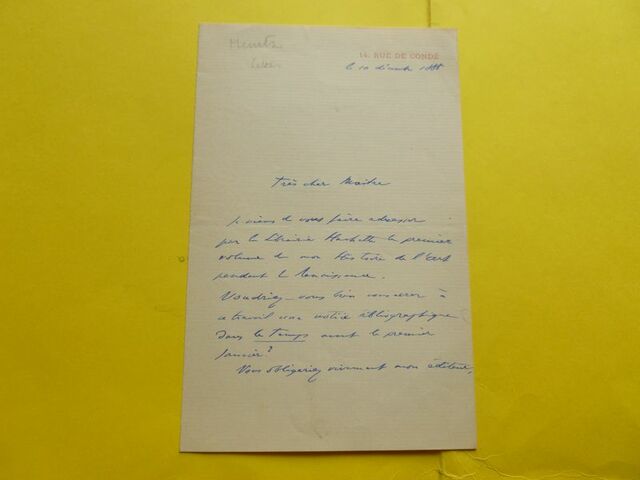 Muntz
14, RUE DE CONDÉ
le 10 décembre 1888
Très cher Maître
Je viens de vous faire adresser
par la librairie Hachette le premier
volume de mon Histoire de l'Art
pendant la Renaissance.
Voudriez-vous bien consacrer à
ce travail une notice bibliographique
dans le Temps avant le premier
Janvier?
Vous obligeriez vivement mon éditeur,